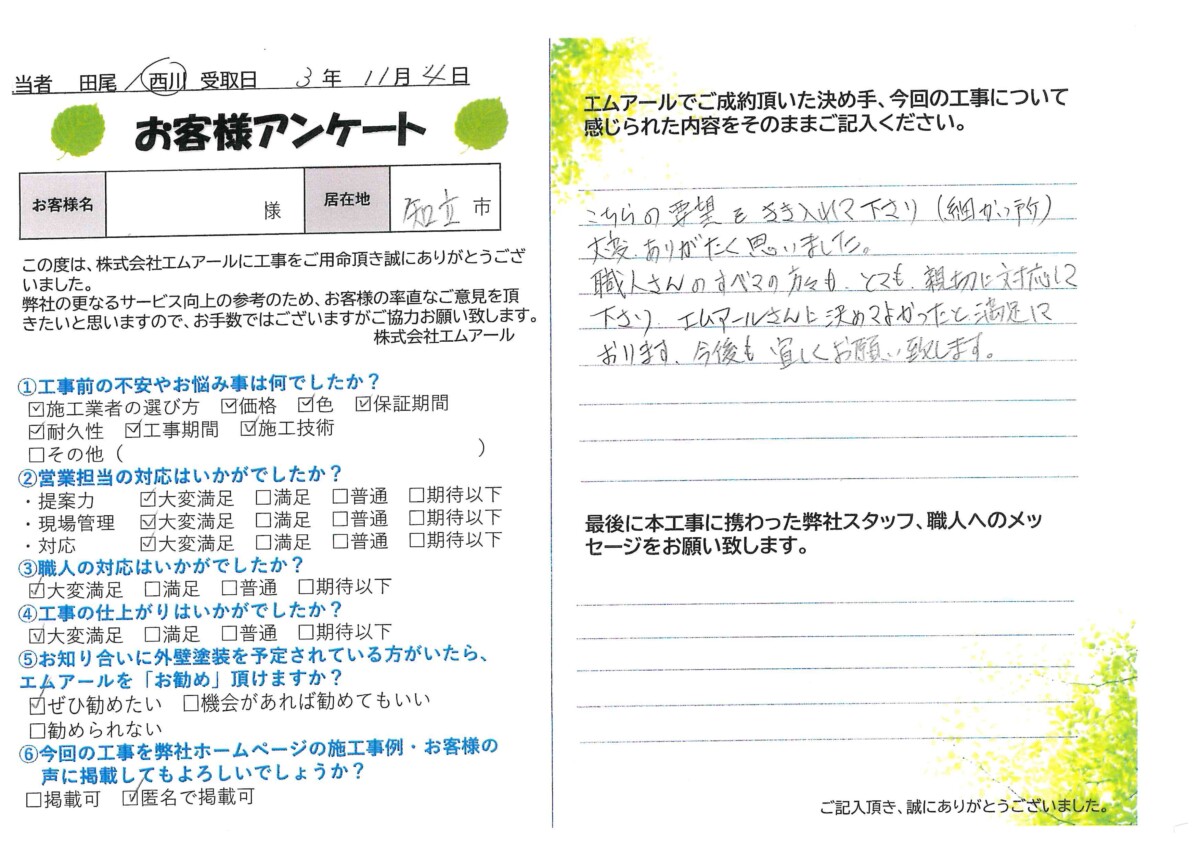 当者 田尾/西川 受取日 3年 11月 4日
お客様アンケート
お客様名 様 居在地 知立 市
この度は、株式会社エムアールに工事をご用命頂き誠にありがとうござ
いました。
弊社の更なるサービス向上の参考のため、お客様の率直なご意見を頂
きたいと思いますので、お手数ではございますがご協力お願い致します。
株式会社エムアール
①工事前の不安やお悩み事は何でしたか？
☑施工業者の選び方 ☑価格 ☑色 ☑保証期間
☑耐久性 ☑工事期間 ☑施工技術
□その他（ ）
②営業担当の対応はいかがでしたか？
・提案力 ☑大変満足 □満足 □普通 □期待以下
・現場管理 ☑大変満足 □満足 □普通 □期待以下
・対応 ☑大変満足 □満足 □普通 □期待以下
③職人の対応はいかがでしたか？
☑大変満足 □満足 □普通 □期待以下
④工事の仕上がりはいかがでしたか？
☑大変満足 □満足 □普通 □期待以下
⑤お知り合いに外壁塗装を予定されている方がいたら、
エムアールを「お勧め」頂けますか？
☑ぜひ勧めたい □機会があれば勧めてもいい
□勧められない
⑥今回の工事を弊社ホームページの施工事例・お客様の
声に掲載してもよろしいでしょうか？
□掲載可 ☑匿名で掲載可
エムアールでご成約頂いた決め手、今回の工事について
感じられた内容をそのままご記入ください。
こちらの要望をきき入れて下さり（細かい所）
大変ありがたく思いました。
職人さんのすべての方々も、とても、親切に対応して
下さり、エムアールさんに決めてよかったと満足して
おります。今後も宜しくお願い致します。
最後に本工事に携わった弊社スタッフ、職人へのメッ
セージをお願い致します。
ご記入頂き、誠にありがとうございました。